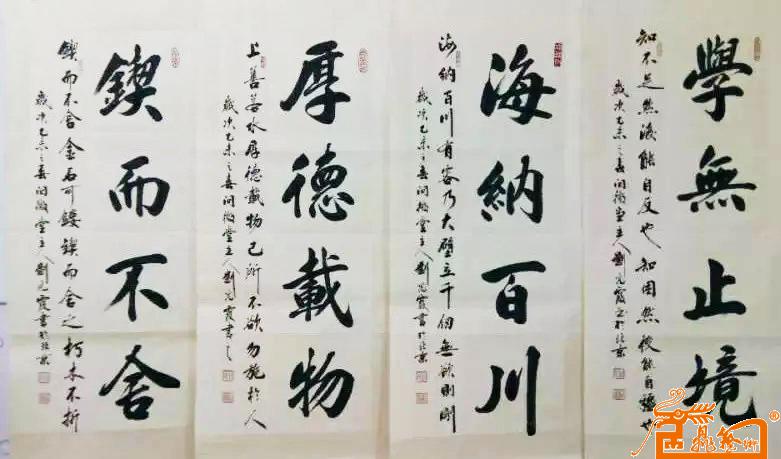 學無止境
知不足然後能自反也知困然後能自強也
歲次乙未之春問微堂主人劉元霞書於北京
海納百川
海納百川有容乃大壁立千仞無欲則剛
歲次乙未之春問微堂主人劉元霞書於北京
厚德載物
上善若水厚德載物己所不欲勿施於人
歲次乙未之春問微堂主人劉元霞書
鍥而不舍
鍥而不舍金石可鏤鍥而舍之朽木不折
歲次乙未之春問微堂主人劉元霞書於北京